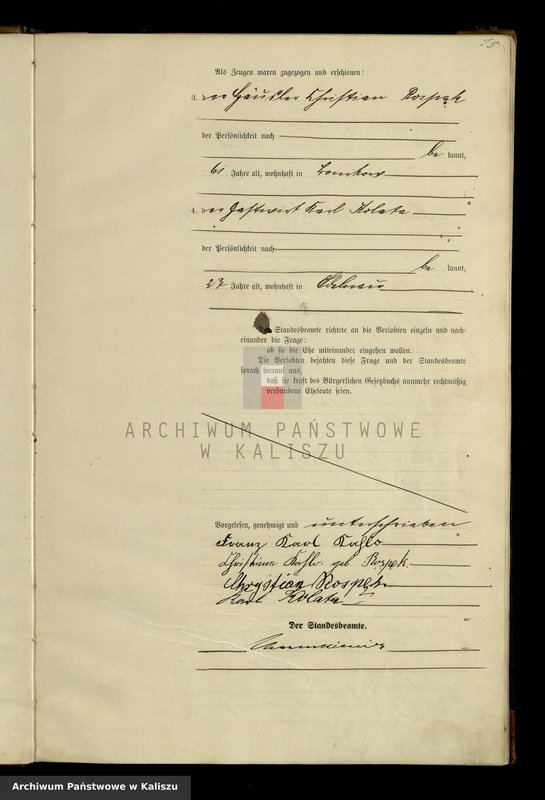 Als Zeugen waren zugezogen und erschienen:
3. der Häusler Christian Rospęk
der Persönlichkeit nach
be kannt,
61 Jahre alt, wohnhaft in
4. der Gastwirt Karl Kolata
der Persönlichkeit nach
be kannt,
27 Jahre alt, wohnhaft in
Standesbeamte richtete an die Verlobten einzeln und nach-
einander die Frage:
ob sie die Ehe miteinander eingehen wollen.
Die Verlobten bejahten diese Frage und der Standesbeamte
sprach hierauf aus,
daß sie kraft des Bürgerlichen Gesetzbuchs nunmehr rechtmäßig
verbundene Eheleute seien.
ARCHIWUM PAŃSTWOWE
W KALISZU
Vorgelesen, genehmigt und unterschrieben
Franz Karl Kahlo
Christiane Kahlo geb Rospęk
Chrystian Rospęk
Karl Kolata
Der Standesbeamte.
Archiwum Państwowe w Kaliszu